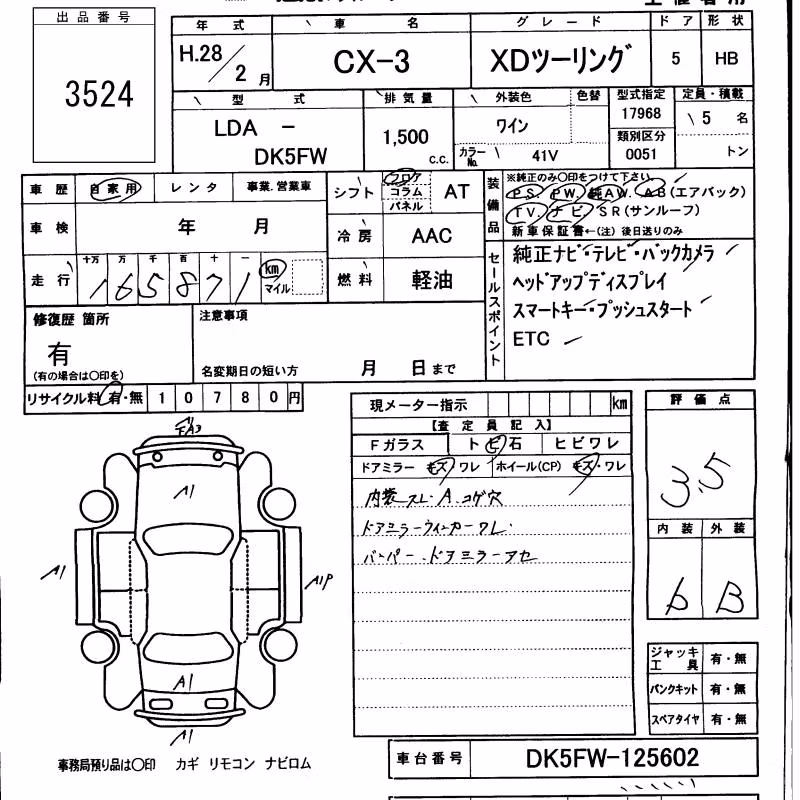 出品番号
3524
年 式
H.28/2月
車 名
CX-3
グレード
XDツーリング
ドア
5
形状
HB
型 式
LDA -
DK5FW
排気量
1,500
c.c.
外装色
ワイン
色替
カラーNo.
41V
型式指定
17968
類別区分
0051
定員・積載
5 名
トン
車歴 自家用 レンタ 事業.営業車
車検 年 月
走行 十万 万 千 百 十 一
165871
km
マイル
シフト フロア コラム パネル AT
冷房 AAC
燃料 軽油
装備品
※純正のみ〇印をつけて下さい。
PS. PW. 純AW. AB(エアバック)
TV. ナビ. SR(サンルーフ)
新車保証書←(注) 後日送りのみ
セールスポイント
純正ナビ・テレビ・バックカメラ
ヘッドアップディスプレイ
スマートキー・プッシュスタート
ETC
修復歴 箇所
有
(有の場合は〇印を)
注意事項
名変期日の短い方 月 日まで
リサイクル料 有・無 10780円
現メーター指示 km
【査定員記入】
Fガラス トビ石 ヒビワレ
ドアミラー キズ・ワレ ホイール(CP) キズ・ワレ
内装スレ・A.コゲ穴
ドアミラーウィンカーワレ.
バンパー.ドアミラーアセ
評価点
3.5
内装 外装
b B
A1
A1
A1P
A1
A1
ジャッキ工具 有・無
パンクキット 有・無
スペアタイヤ 有・無
事務局預り品は〇印 カギ リモコン ナビロム
車台番号
DK5FW-125602